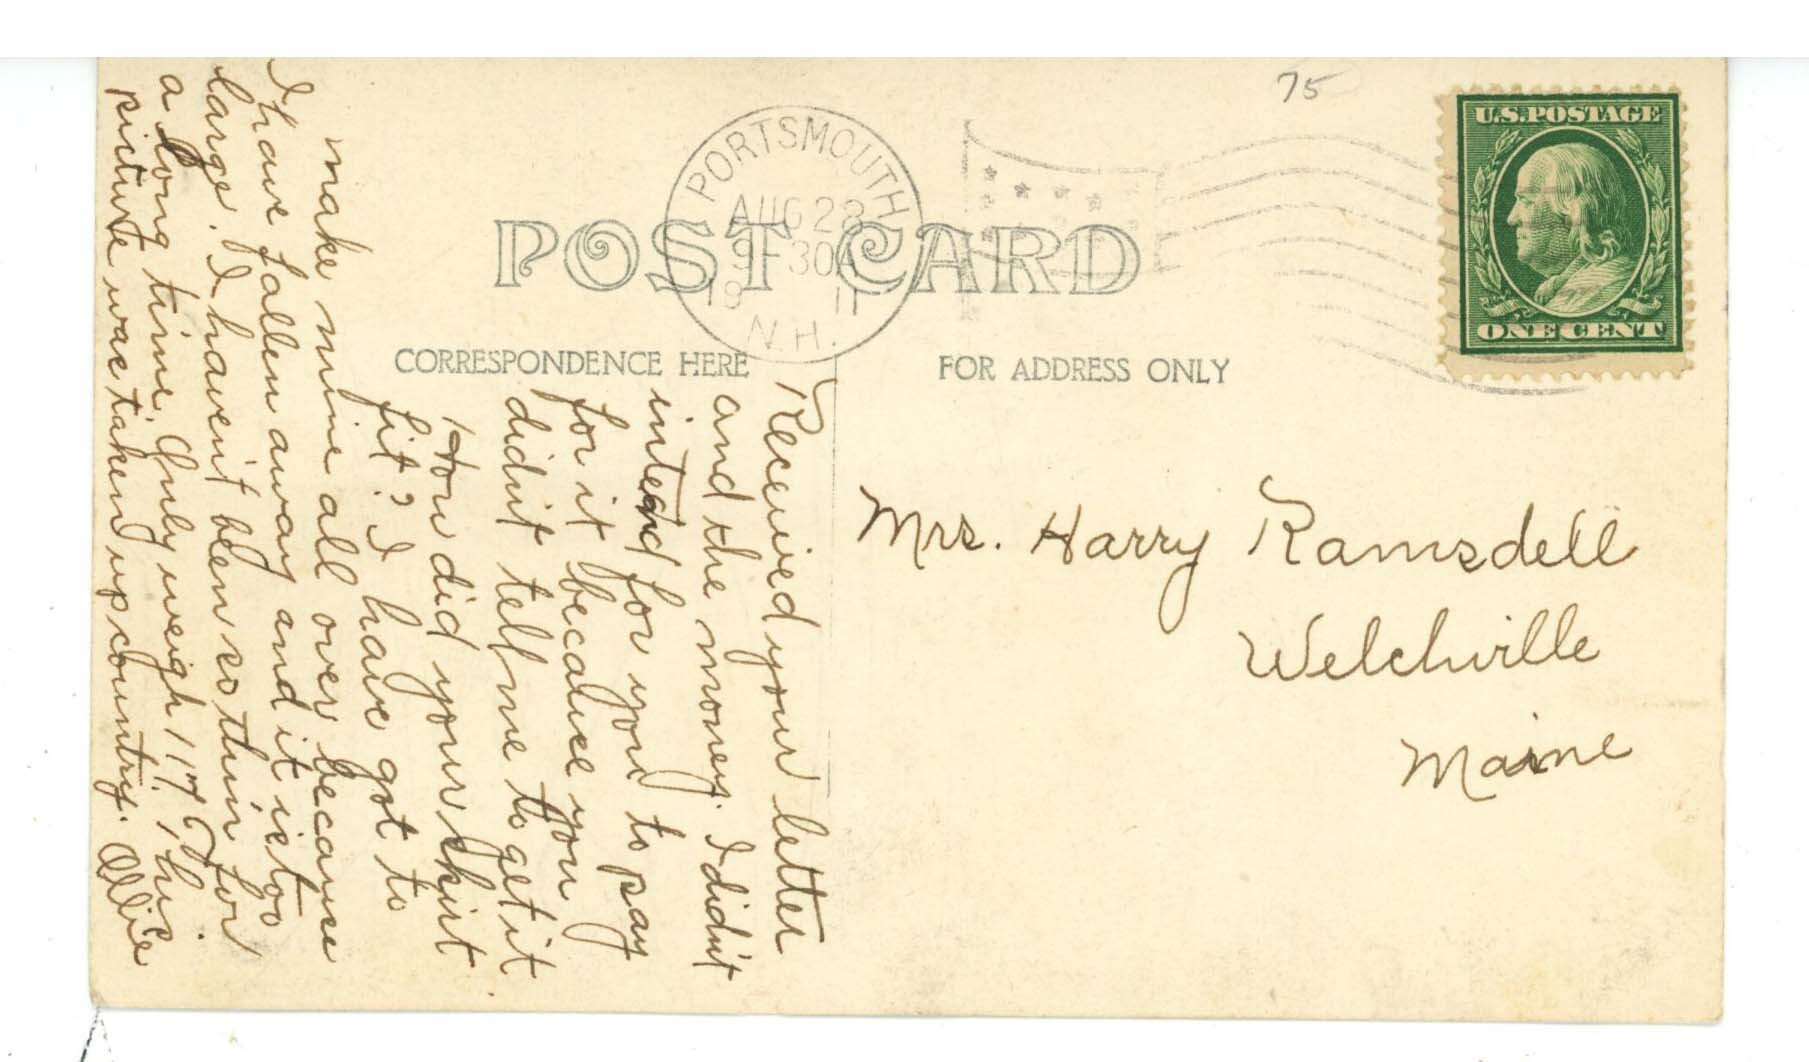 75
U.S. POSTAGE
ONE CENT
PORTSMOUTH
AUG 23
9-30A
19 11
N.H.
POST CARD
CORRESPONDENCE HERE
FOR ADDRESS ONLY
Mrs. Harry Ramsdell
Welchville
Maine
Received your letter
and the money. I didn't
intend for you to pay
for it because you
didn't tell me to get it
How did your skirt
fit? I have got to
make mine all over because
I have fallen away and it is too
large. I haven't been so thin for
a long time. Only weigh 117. This
picture was taken up country. Ollie